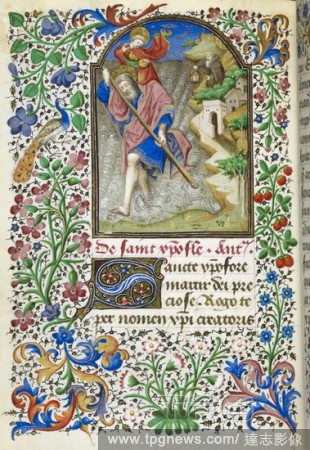 De saint xpofle. Ant̃.
Sancte xpofore
martir dei pre
ciose. Rogo te
per nomen xpi creatoris
www.tpgnews.com/達志影像